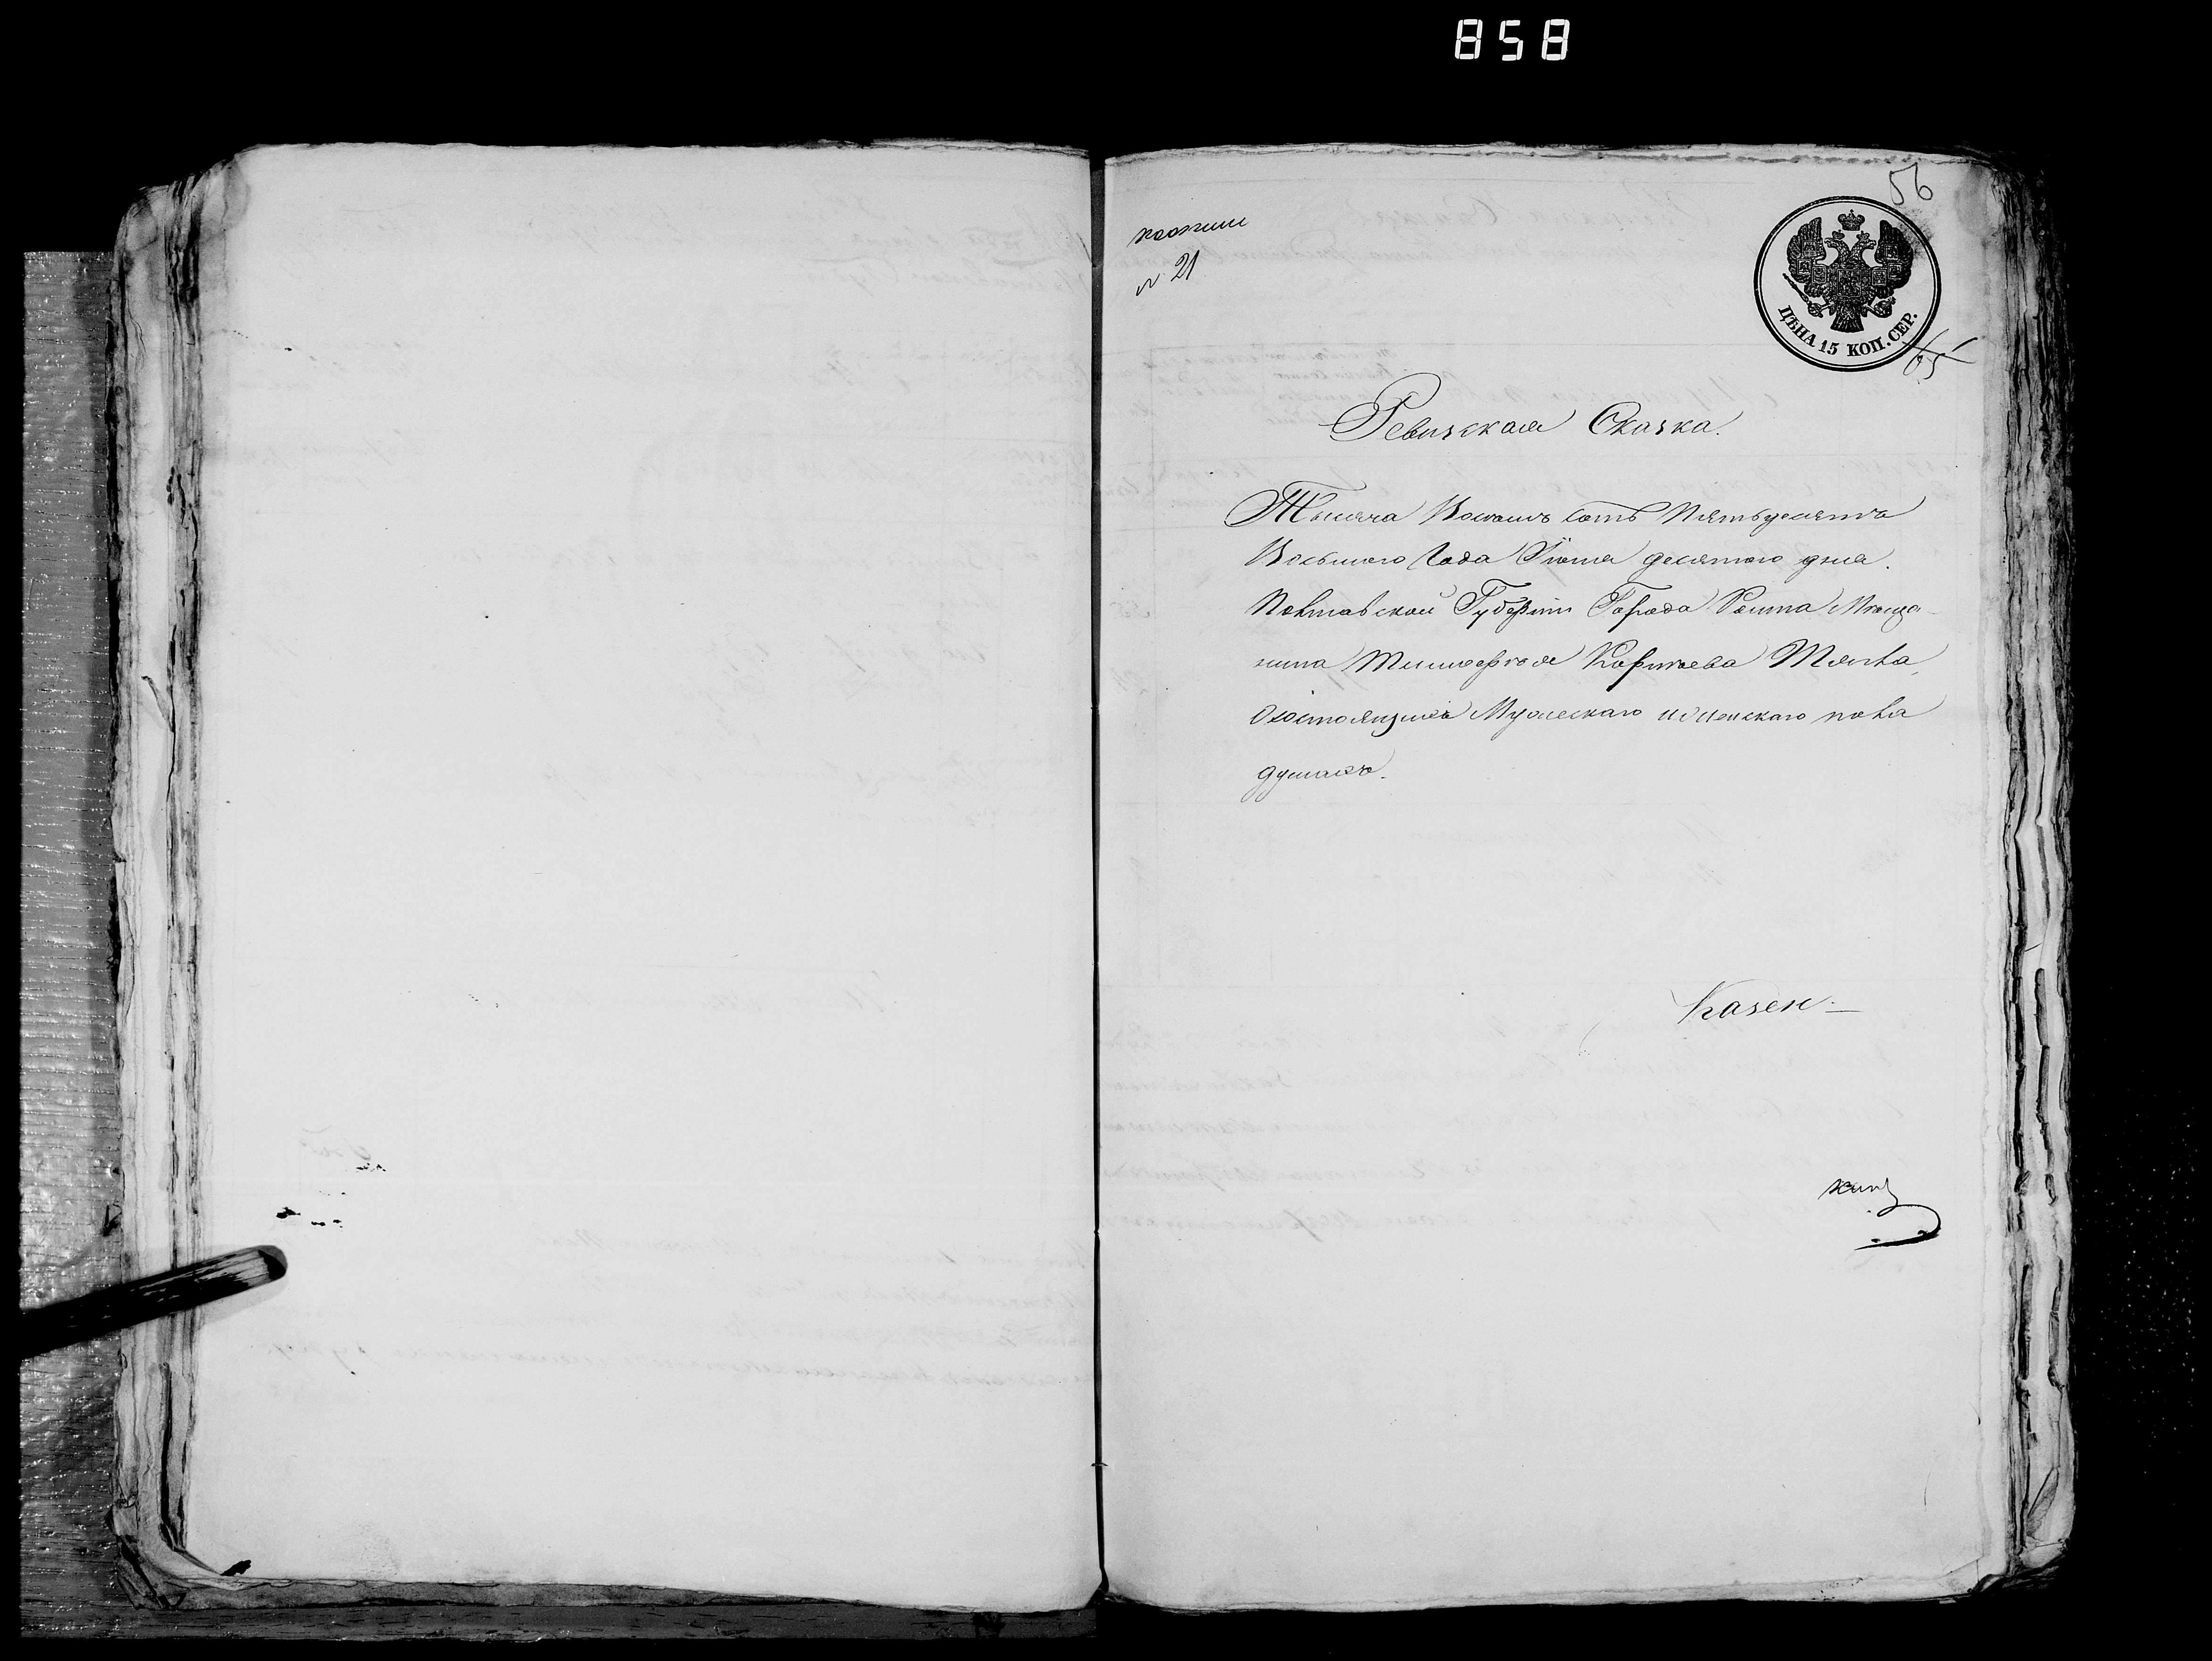 858
56
№ 21
ЦѢНА 15 КОП. СЕР.
65
Ревизская Сказка.
Тысяча Восемь сотъ Пятьдесятъ
Восьмого Года Іюня десятого дня.
Полтавской Губерніи Города Ромна Мѣща-
нина Тимофея
О состоящихъ Мужескаго и женскаго пола
душахъ.
Казен-